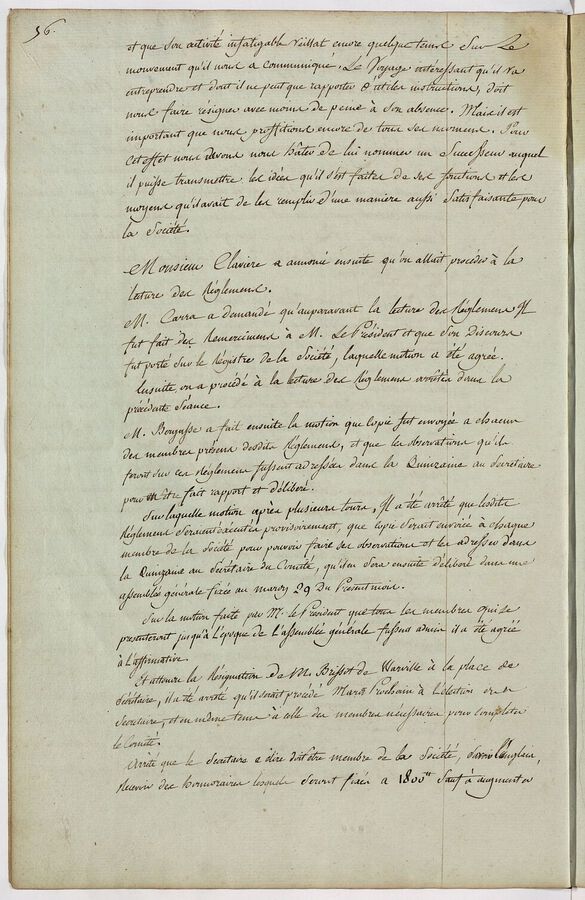 56.
et que son activité infatigable veillat encore quelque tems sur le
mouvement qu'il nous a communiqué, Le Voyage interessant qu'il va
entreprendre et dont il ne peut que rapporter d'utiles instructions, doit
nous faire résigner avec moins de peine à son absence. Mais il est
important que nous proffitions encore de tous ses momens. Pour
cet effet nous devons nous hâter de lui nommer un Successeur auquel
il puisse transmettre les idées qu'il s'est faites de ses fonctions et les
moyens qu'il avait de les remplir d'une maniere aussi satisfaisante pour
la Société.
Monsieur Claviere a annoncé ensuite qu'on allait procéder à la
lecture des Réglemens.
M. Carra a demandé qu'auparavant la lecture des Réglemens Il
fut fait des Remercimens à M. Le Président et que son Discours
fut porté sur le Régistre de la Société, laquelle motion a été agréé.
Ensuite, on a procédé à la lecture des Réglemens arrêtés dans la
précédente Séance.
M. Bergasse a fait ensuite la motion que copie fut envoyée a chacun
des membres présens desdits Réglemens, et que les observations qu'ils
feront sur ces Réglemens fussent adressées dans la Quinzaine au Secretaire
pour être fait rapport et délibéré.
Sur laquelle motion après plusieurs tours, Il a été arrêté que lesdits
Réglemens seraient éxécutés provisoirement, que copie serait envoiée à chaque
membre de la Société pour pouvoir faire ses observations et les adresser dans
la Quinzaine au Secrétaire du Comité, qu'il en sera ensuite délibéré dans une
assemblée générale fixée au mardy 29 du Présent mois.
Sur la motion faite par M. le Président que tous les membres qui se
presenteront jusqu'à l'époque de l'assemblée générale fussent admis il a été agréé
à l'affirmative.
Et attendu la Résignation de M. Brissot de Warville à la place de
Sécrétaire, il a été arrêté qu'il serait procédé Mardi Prochain à l'élection d'un
Secretaire, et en même tems à celle des membres nécessaires pour completer
le Comité.
Arrêté que le Secretaire a élire doit être membre de la Société, savoir l'anglais,
Recevoir des honnoraires lesquels seront fixés a 1800 tt sauf à augmenter